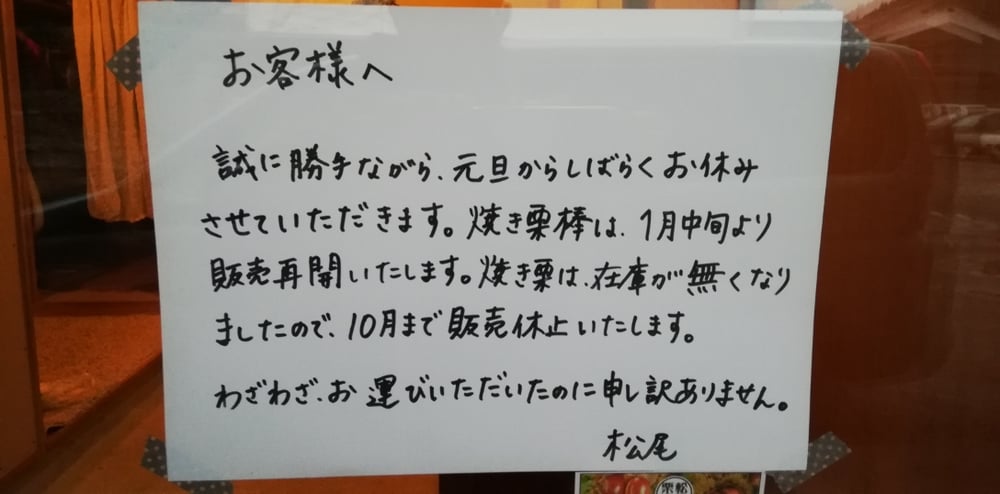 お客様へ
誠に勝手ながら、元旦からしばらくお休み
させていただきます。焼き栗棒は、1月中旬より
販売再開いたします。焼き栗は、在庫が無くなり
ましたので、10月まで販売休止いたします。
わざわざ、お運びいただいたのに申し訳ありません。
松尾